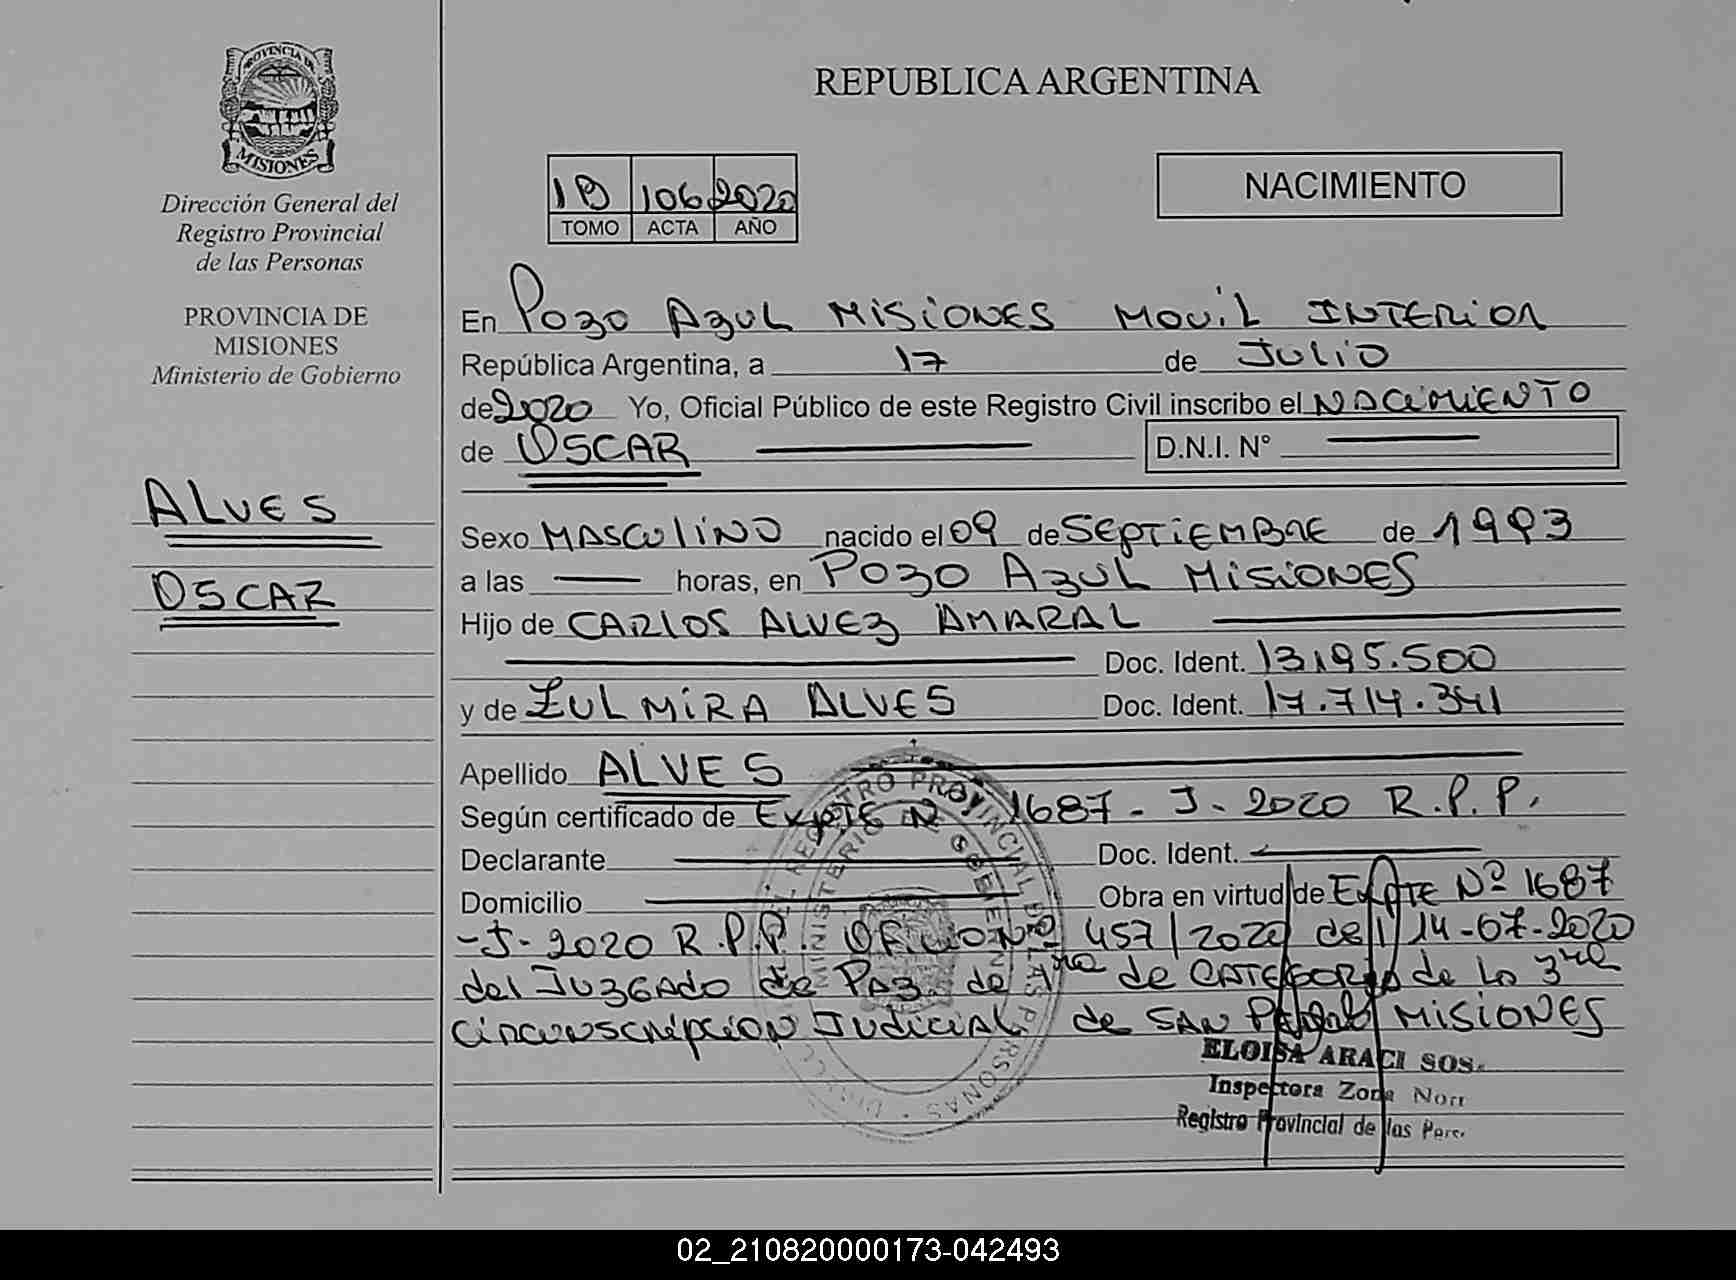 PROVINCIA DE
MISIONES
Dirección General del
Registro Provincial
de las Personas
PROVINCIA DE
MISIONES
Ministerio de Gobierno
ALVES
OSCAR
REPUBLICA ARGENTINA
106 2020
TOMO ACTA AÑO
NACIMIENTO
En Pozo Azul MISIONES MOVIL INTERIOR
República Argentina, a 17 de JULIO
de 2020 Yo, Oficial Público de este Registro Civil inscribo el NACIMIENTO
de OSCAR D.N.I. N°
Sexo MASCULINO nacido el 09 de SEPTIEMBRE de 1993
a las horas, en POZO AZUL MISIONES
Hijo de CARLOS ALVEZ AMARAL
Doc. Ident. 13.195.500
y de ZULMIRA ALVES Doc. Ident. 17.714.341
Apellido ALVES
Según certificado de EXPTE N 1687 - J - 2020 R.P.P.
Declarante Doc. Ident.
Domicilio Obra en virtud de EXPTE Nº 1687
-J- 2020 R.P.P. OFICIO Nº 457/2020 del 14-07-2020
del JUZGADO de PAZ de 1ra de CATEGORIA de la 3ra
CIRCUNSCRIPCION JUDICIAL de SAN PEDRO MISIONES
ELOISA ARACI SOS
Inspectora Zona Nort
Registro Provincial de las Pers.
REGISTRO PROVINCIAL DE LAS PERSONAS
MINISTERIO DE GOBIERNO
02_210820000173-042493